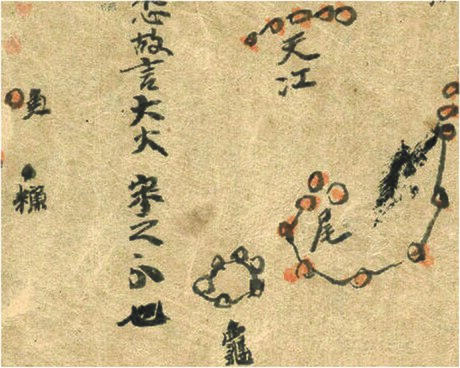 天江
尾
龜
心故言大火宋之分也
魚
糠